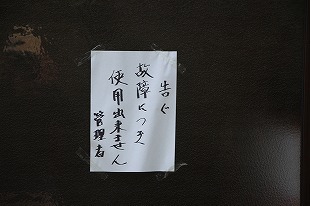 告ぐ
故障につき
使用出来ません
管理者